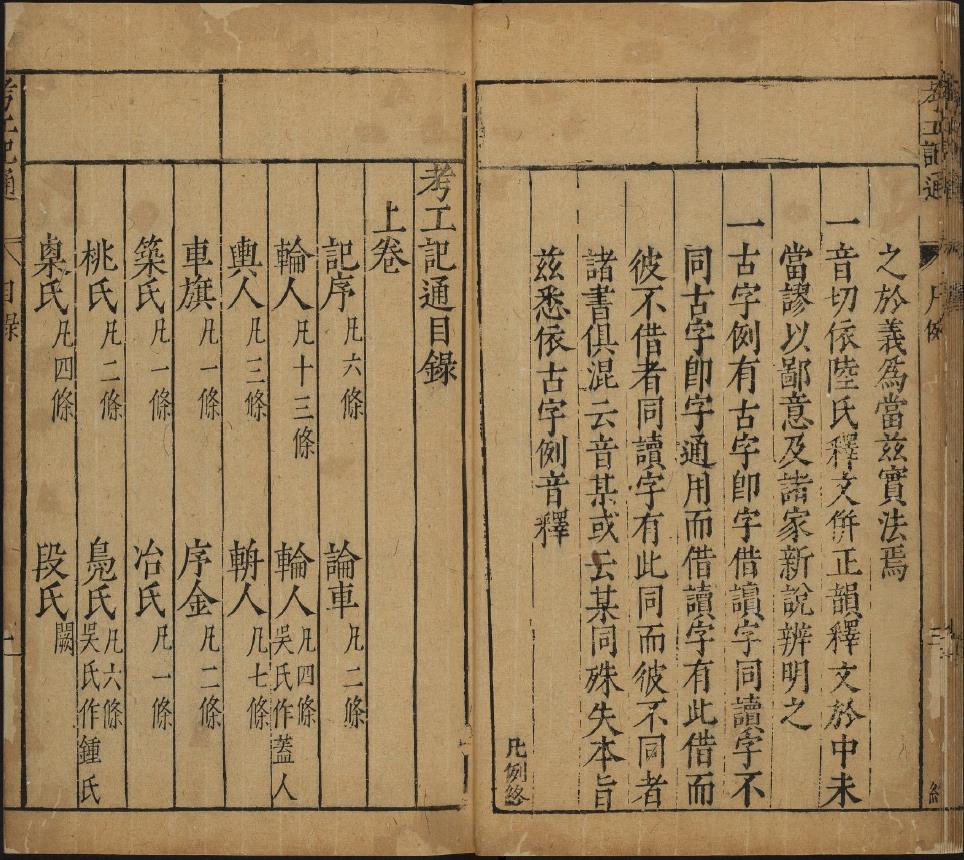 之於義為當茲實法焉
一音切依陸氏釋文併正韻釋文於中未
當謬以鄙意及諸家新說辨明之
一古字例有古字卽字借讀字同讀字不
同古字卽字通用而借讀字有此借而
彼不借者同讀字有此同而彼不同者
諸書俱混云音某或云某同殊失本旨
茲悉依古字例音釋
凡例終
考工記通目錄
上卷
記序 凡六條 論車 凡二條
輪人 凡十三條 輪人 凡四條 吳氏作蓋人
輿人 凡三條 輈人 凡七條
車旗 凡一條 序金 凡二條
築氏 凡一條 冶氏 凡一條
桃氏 凡二條 鳧氏 凡六條 吳氏作鍾氏
㮚氏 凡四條 段氏 闕
考工記通 目錄